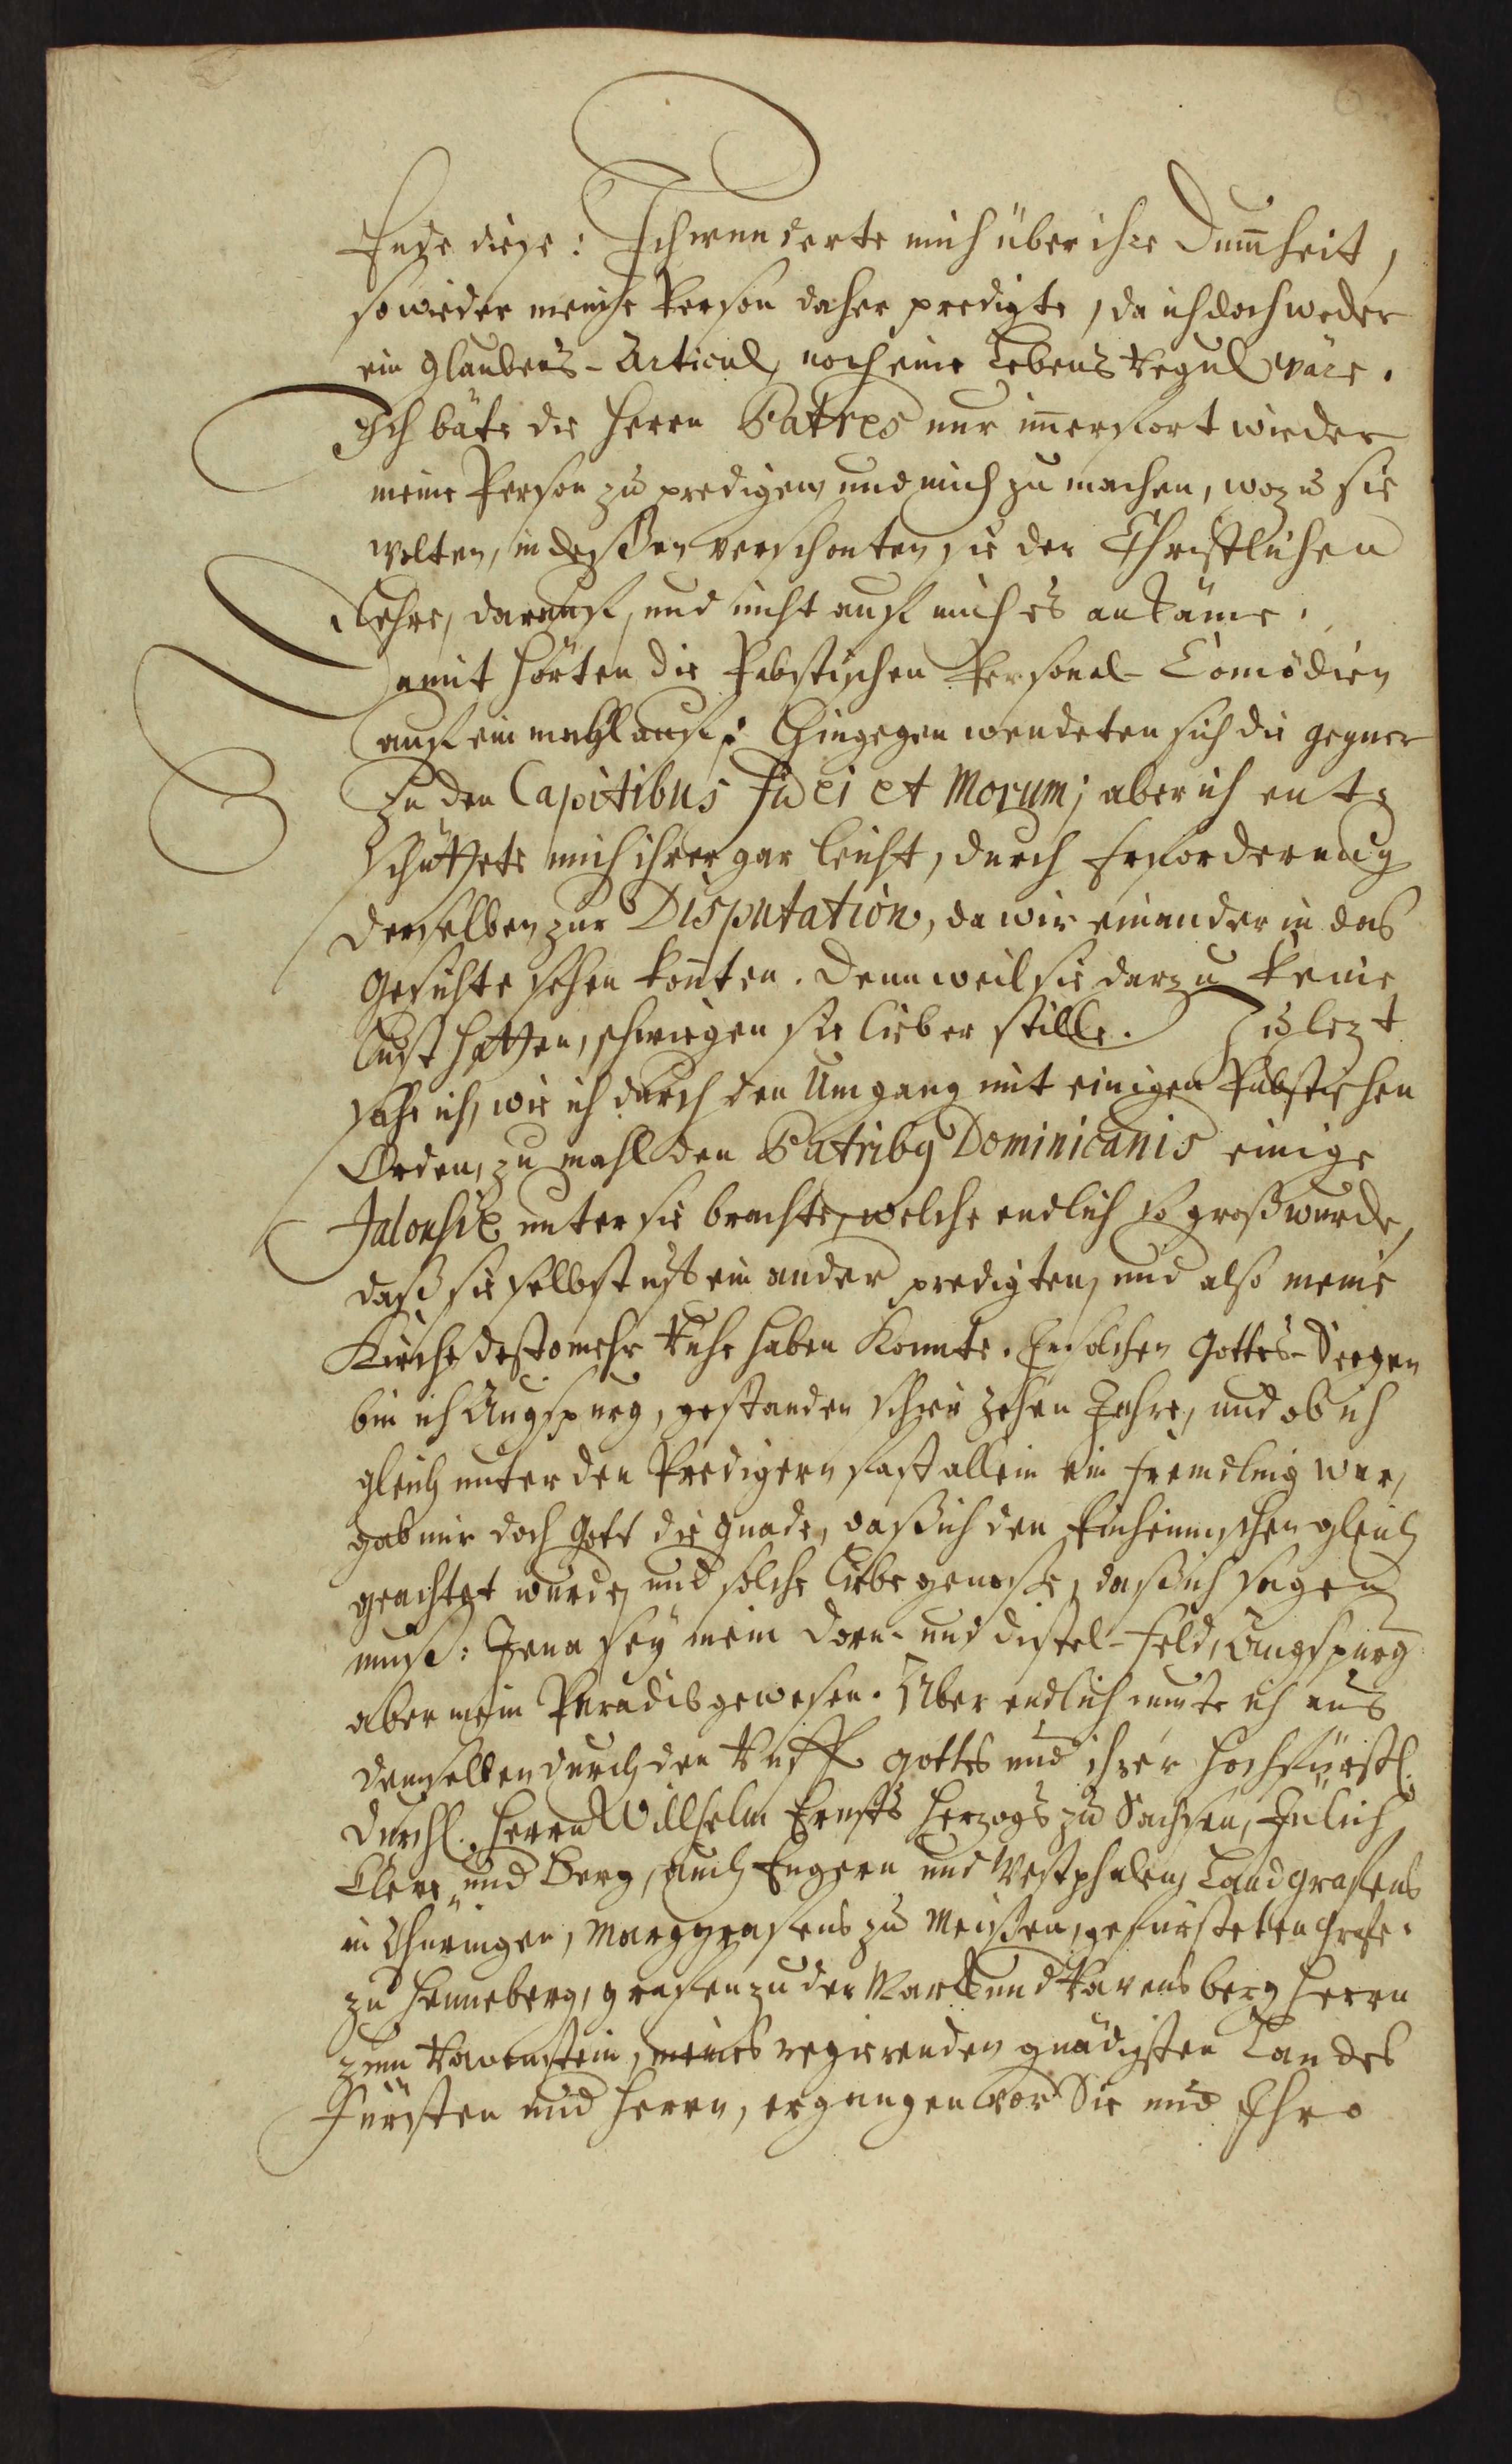 Ende diese: Ich wunderte mich über ihre Dum̄heit,
so wieder meine Person daher predigte, da ich doch weder
ein Glaubens-Articul, noch eine Lebens Regul wäre.
Ich bäte die Herrn Patres nur im̄erfort wieder
meine Person zu predigen und mich zu machen, wozu sie
wolten, indessen verschonten sie der Christlichen
Lehre, darauf, und nicht auf mich es ankäme.
Damit hörten die Pabstischen Personal-Comödien
auf ein mahl auf: Hingegen wendeten sich die Gegner
zu den Capitibus Fidei et Morum; aber ich ent-
schüttete mich ihrer gar leicht, durch Erforderung
derselben zur Disputation, da wir einander in das
Gesichte sehen kon̄ten. Denn weil sie darzu keine
Lust hatten, schwiegen sie lieber stille. Zulezt
sahe ich, wie ich durch den Umgang mit einigen Pabstischen
Orden, zumahl den Patribq Dominicanis einige
Jalousie unter sie brachte, welche endlich so groß wurde,
daß sie selbst auf einander predigten, und also meine
Kirche destomehr Ruhe haben konnte. In solchen Gottes-Seegen
bin ich Augspurg, gestanden schier zehen Jahre, und ob ich
gleich unter den Predigern fast allein ein Fremdling war,
gab mir doch Gott die Gnade, daß ich den Einheimischen gleich
geachtet wurde, und solche Liebe genosse, daß ich sagen
muß: Jena sey mein Dorn- und Distel-Feld, Augspurg
aber mein Paradis gewesen. Aber endlich muste ich aus
demselben durch den Ruff Gottes und ihrer Hochfürstl.
Durchl. Herrn Willhelm Ernsts Herzogs zu Sachsen, Jülich
Cleve und Berg, auch Engern und Westphalen, Landgrafens
in Thüringen, Marggrafens zu Meißen, gefürsteten Grafe.
zu Henneberg, Grafen zu der Marck und Ravensberg Herrn
zum Ravenstein, meines regierenden gnädigsten Landes
Fürsten und Herrn, ergangen vor Sie und Ihro